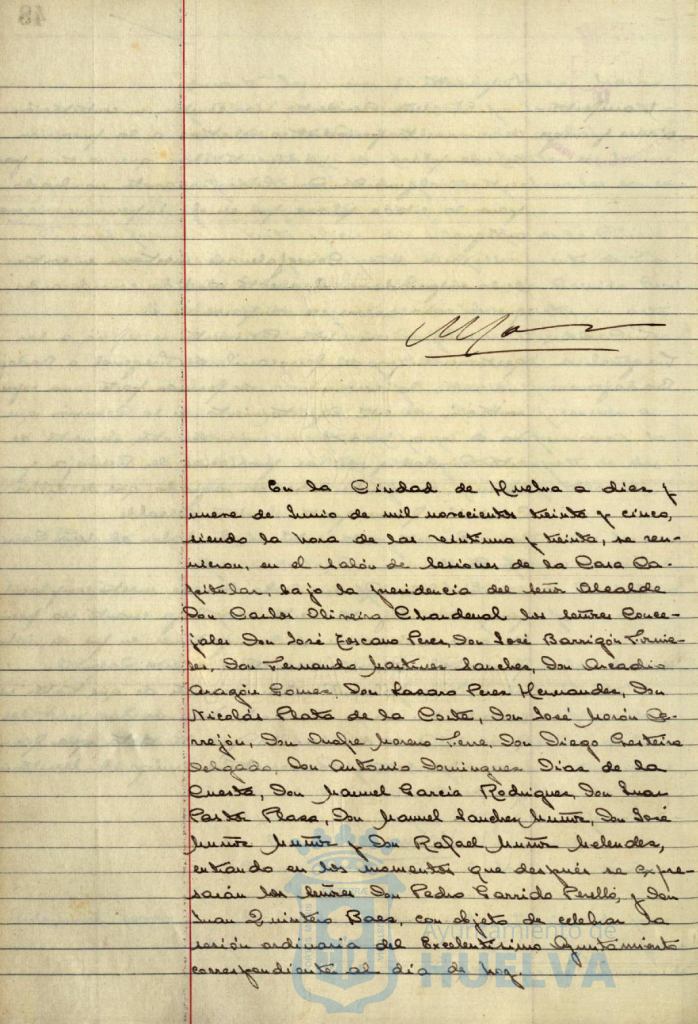 En la Ciudad de Huelva a diez y
nueve de Junio de mil novecientos treinta y cinco,
siendo la hora de las veintiuna y treinta, se reu-
nieron, en el Salón de Sesiones de la Casa Ca-
pitular, bajo la presidencia del Señor Alcalde
Don Carlos Oliveira Chardenal los señores Conce-
jales Don José Toscano Perez, Don José Barrigón Fornie-
les, Don Fernando Martinez Sanchez, Don Arcadio
Aragón Gomez, Don Lazaro Perez Hernandez, Don
Nicolás Plata de la Corte, Don José Morón Ce-
rrejón, Don Onofre Moreno Ferre, Don Diego Cresteira
Delgado, Don Antonio Dominguez Diaz de la
Cuesta, Don Manuel Garcia Rodriguez, Don Juan
Plaza, Don Manuel Sanchez Muñoz, Don José
Muñoz Muñoz y Don Rafael Muñoz Melendez,
entrando en los momentos que después se expre-
sarán los Señores Don Pedro Garrido Perelló, y Don
Juan Quintero Baez, con objeto de celebrar la
sesión ordinaria del Excelentísimo Ayuntamiento
correspondiente al dia de hoy.
Ayuntamiento de
HUELVA